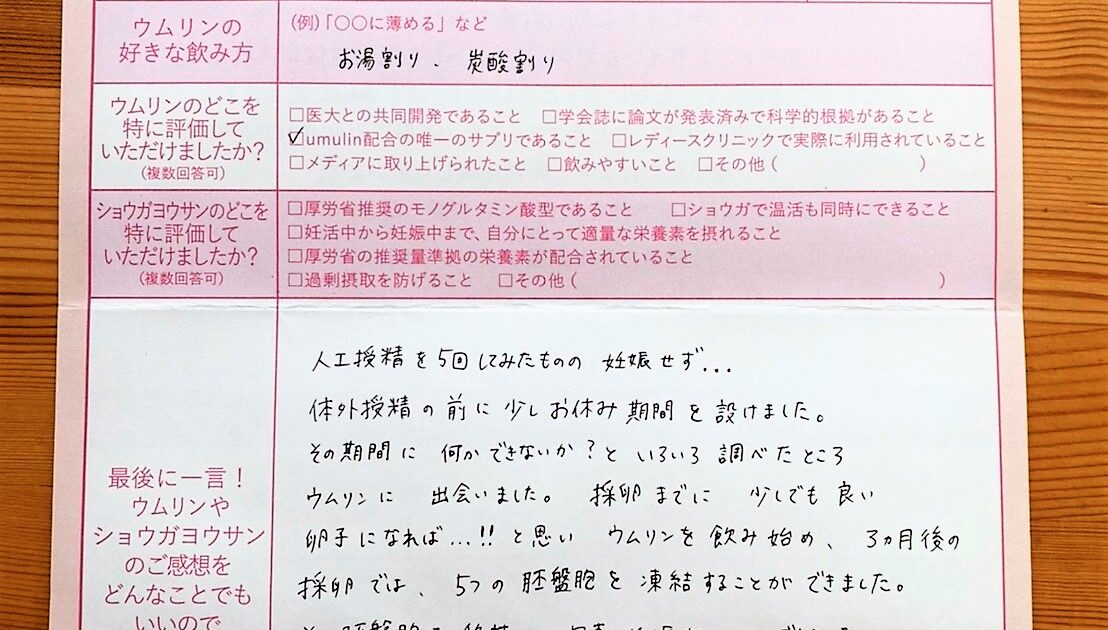 ウムリンの
好きな飲み方
(例)「〇〇に薄める」など
お湯割り、炭酸割り
ウムリンのどこを
特に評価して
いただけましたか?
(複数回答可)
□医大との共同開発であること □学会誌に論文が発表済みで科学的根拠があること
☑umulin配合の唯一のサプリであること □レディースクリニックで実際に利用されていること
□メディアに取り上げられたこと □飲みやすいこと □その他( )
ショウガヨウサンのどこを
特に評価して
いただけましたか?
(複数回答可)
□厚労省推奨のモノグルタミン酸型であること □ショウガで温活も同時にできること
□妊活中から妊娠中まで、自分にとって適量な栄養素を摂れること
□厚労省の推奨量準拠の栄養素が配合されていること
□過剰摂取を防げること □その他( )
最後に一言!
ウムリンや
ショウガヨウサン
のご感想を
どんなことでも
いいので
人工授精を5回してみたものの 妊娠せず...
体外授精の前に少しお休み期間を設けました。
その期間に 何かできないか?といろいろ調べたところ
ウムリンに 出会いました。 採卵までに 少しでも良い
卵子になれば...!!と思い ウムリンを飲み始め、3ヵ月後の
採卵では、5つの胚盤胞を凍結することができました。